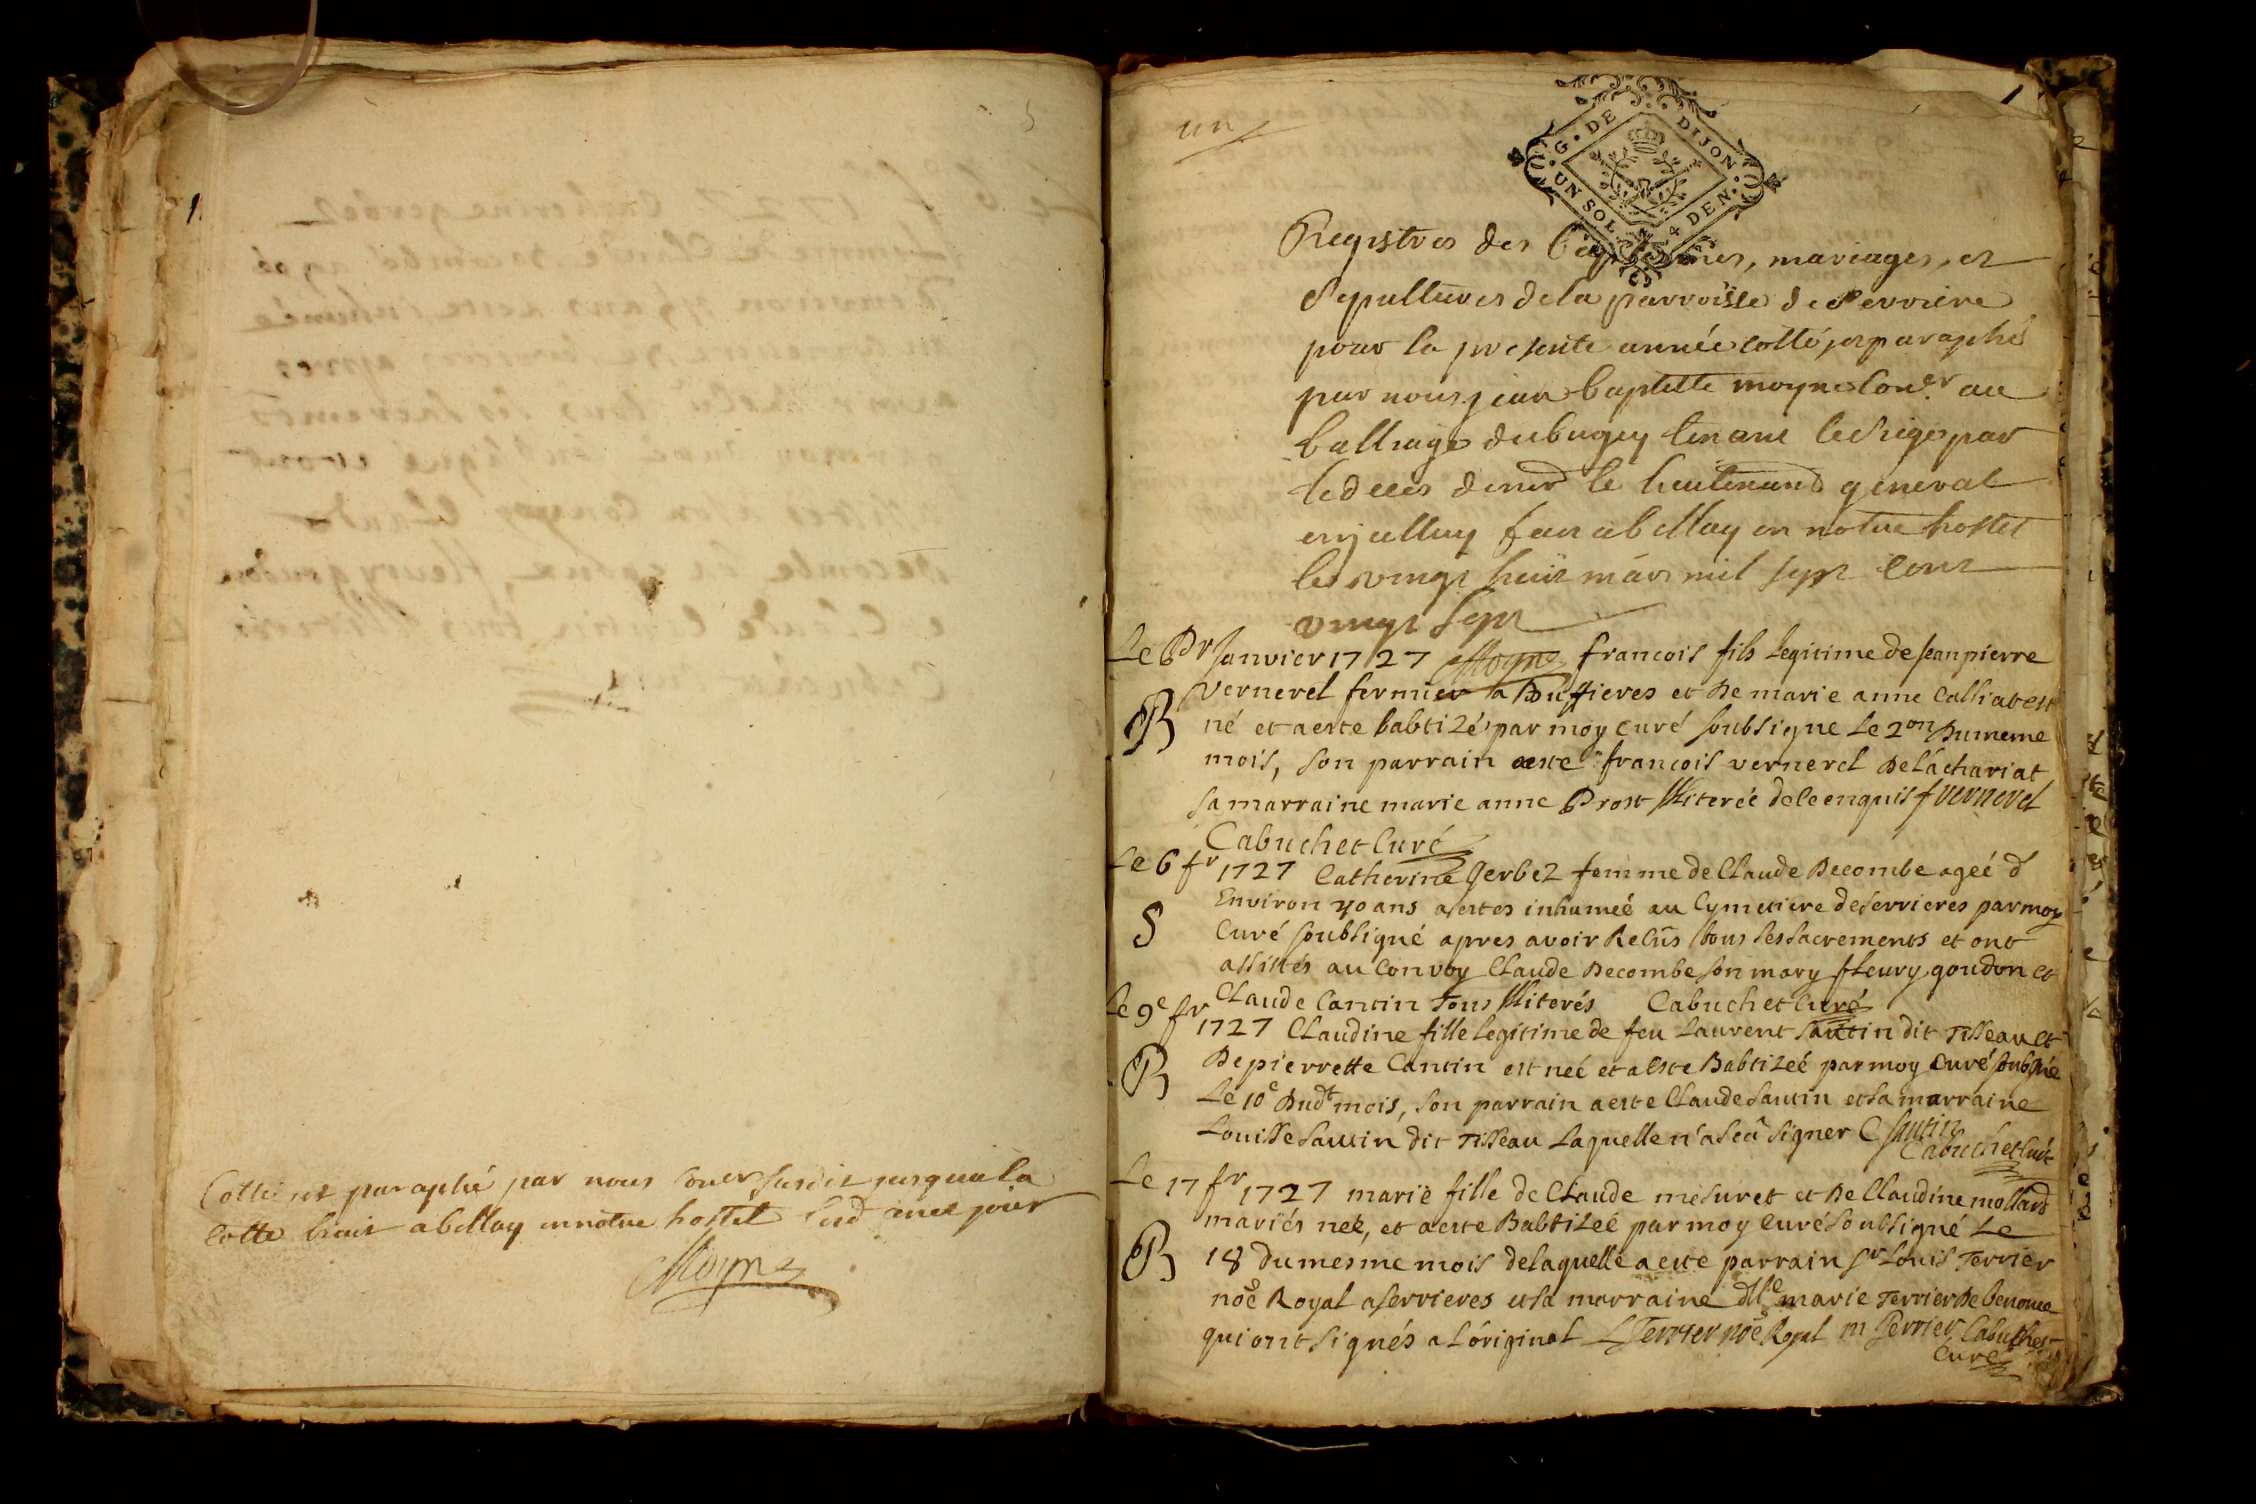 Cotté et paraphé par nous Coner susdit jusqua la
Cotte huit a bellay en notre hostel lesd an et jour
Moyne
un
1
G. DE DIJON
UN SOL. 4 DEN.
Registres des baptesmes, mariages, et
Sepultures de la parroisse de Serriere
pour la presente année cotté et paraphé
par nous jean baptiste moyne Coner au
balliage du bugey tenant le siege par
le deces de mr le lieutenant general
en jcelluy fait a bellay en notre hostel
le vingt huit mars mil sept cent
vingt sept
Le Pr Janvier 1727 Moyne francois fils legitime de Jean pierre
vernerel fermier a Buffieres et De marie anne Calliat est
B
né et a este babtizé par moy curé soubsigne Le 2on Du meme
mois, son parrain a este francois vernerel De Lachariat
sa marraine marie anne Prost jlliterée de ce enquis f vernerel
Cabuchet Curé
Le 6 fr 1727 Catherine Gerbez femme de Claude Decombe ageé d
S
Environ 40 ans a estes inhumeé au Cymetiere de serrieres par moy
Curé soubsigné apres avoir Recus tous les sacrements et ont
assistés au Convoy Claude Decombe son mary fleury goudon et
Claude Cantin Tous jlliterés Cabuchet Curé
Le 9e fr 1727 Claudine fille legitime de feu Laurent Sautin dit Tisseau et
B
De pierrette Cantin est neé et a este Babtizeé par moy Curé soubsigné
Le 10e Dudt mois, son parrain a este Claude Sautin et sa marraine
Louisse Sautin dit Tisseau Laquelle n'a sceu signer C Sautin
Cabuchet Curé
Le 17 fr 1727 marie fille de Claude mesuret et De Claudine mollard
mariés neé, et a este Babtizeé par moy curé soubsigné Le
B
18 du mesme mois de laquelle a este parrain sr Louis Terrier
noe Royal a serrieres et sa marraine dlle marie Terrier De
qui ont signés a L'original L Terrier noe Royal m Terrier Cabuchet
Curé